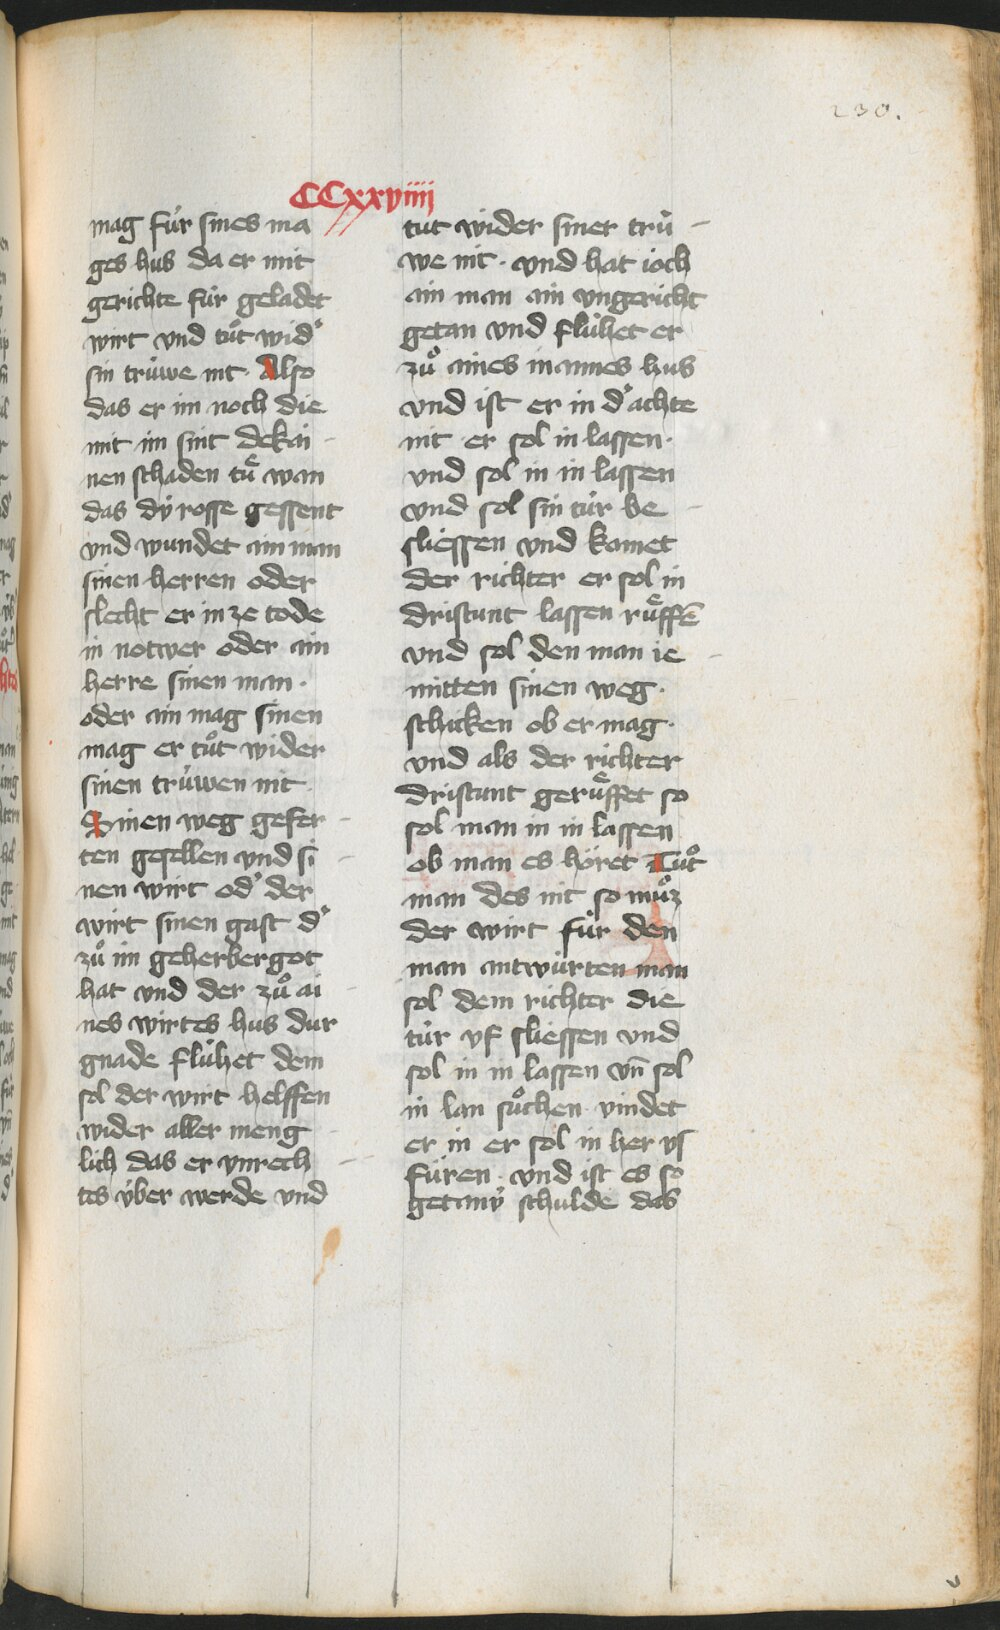 230.
CCxxviiij
mag fúr sines ma
ges hus da er mit
gerichte fúr geladet
wirt vnd tuͦt wid͛
sin trúwe nit. Also
das er im noch die
mit im sint dekai
nen schaden tuͤ wan
das dú rosse gessent
vnd wundet ain man
sinen herren oder
slecht er in ze tode
in notwer oder ain
herre sinen man.
oder ain mag sinen
mag er tuͦt wider
sinen trúwen nit
Sinen weg gefer
ten gesellen vnd si
nen wirt od͛ der
wirt sinen gast d͛
zuͦ im geherbergot
hat vnd der zuͦ ai
nes wirtes hus dur
gnade flúhet dem
sol der wirt helffen
wider aller meng
lich das er vnrech
tes v́ber werde vnd
tut wider siner trú
we nit. vnd hat ioch
ain man ain vngericht
getan vnd flúhet er
zuͦ aines mannes hus
vnd ist er in d͛ achte
nit er sol in lassen.
vnd sol in in lassen
vnd sol sin túr be
sliessen vnd komet
der richter er sol in
dristunt lassen ruͤffē
vnd sol den man ie
mitten sinen weg.
schicken ob er mag.
vnd als der richter
dristunt geruͤffet so
sol man in in lassen
ob man es hóret Tuͦt
man des nit so muͦz
der wirt fúr den
man antwúrten man
sol dem richter die
túr vf sliessen vnd
sol in in lassen vn̄ sol
in lan suͦchen vindet
er in er sol in her vs
fúren. vnd ist es so
getanú schulde das